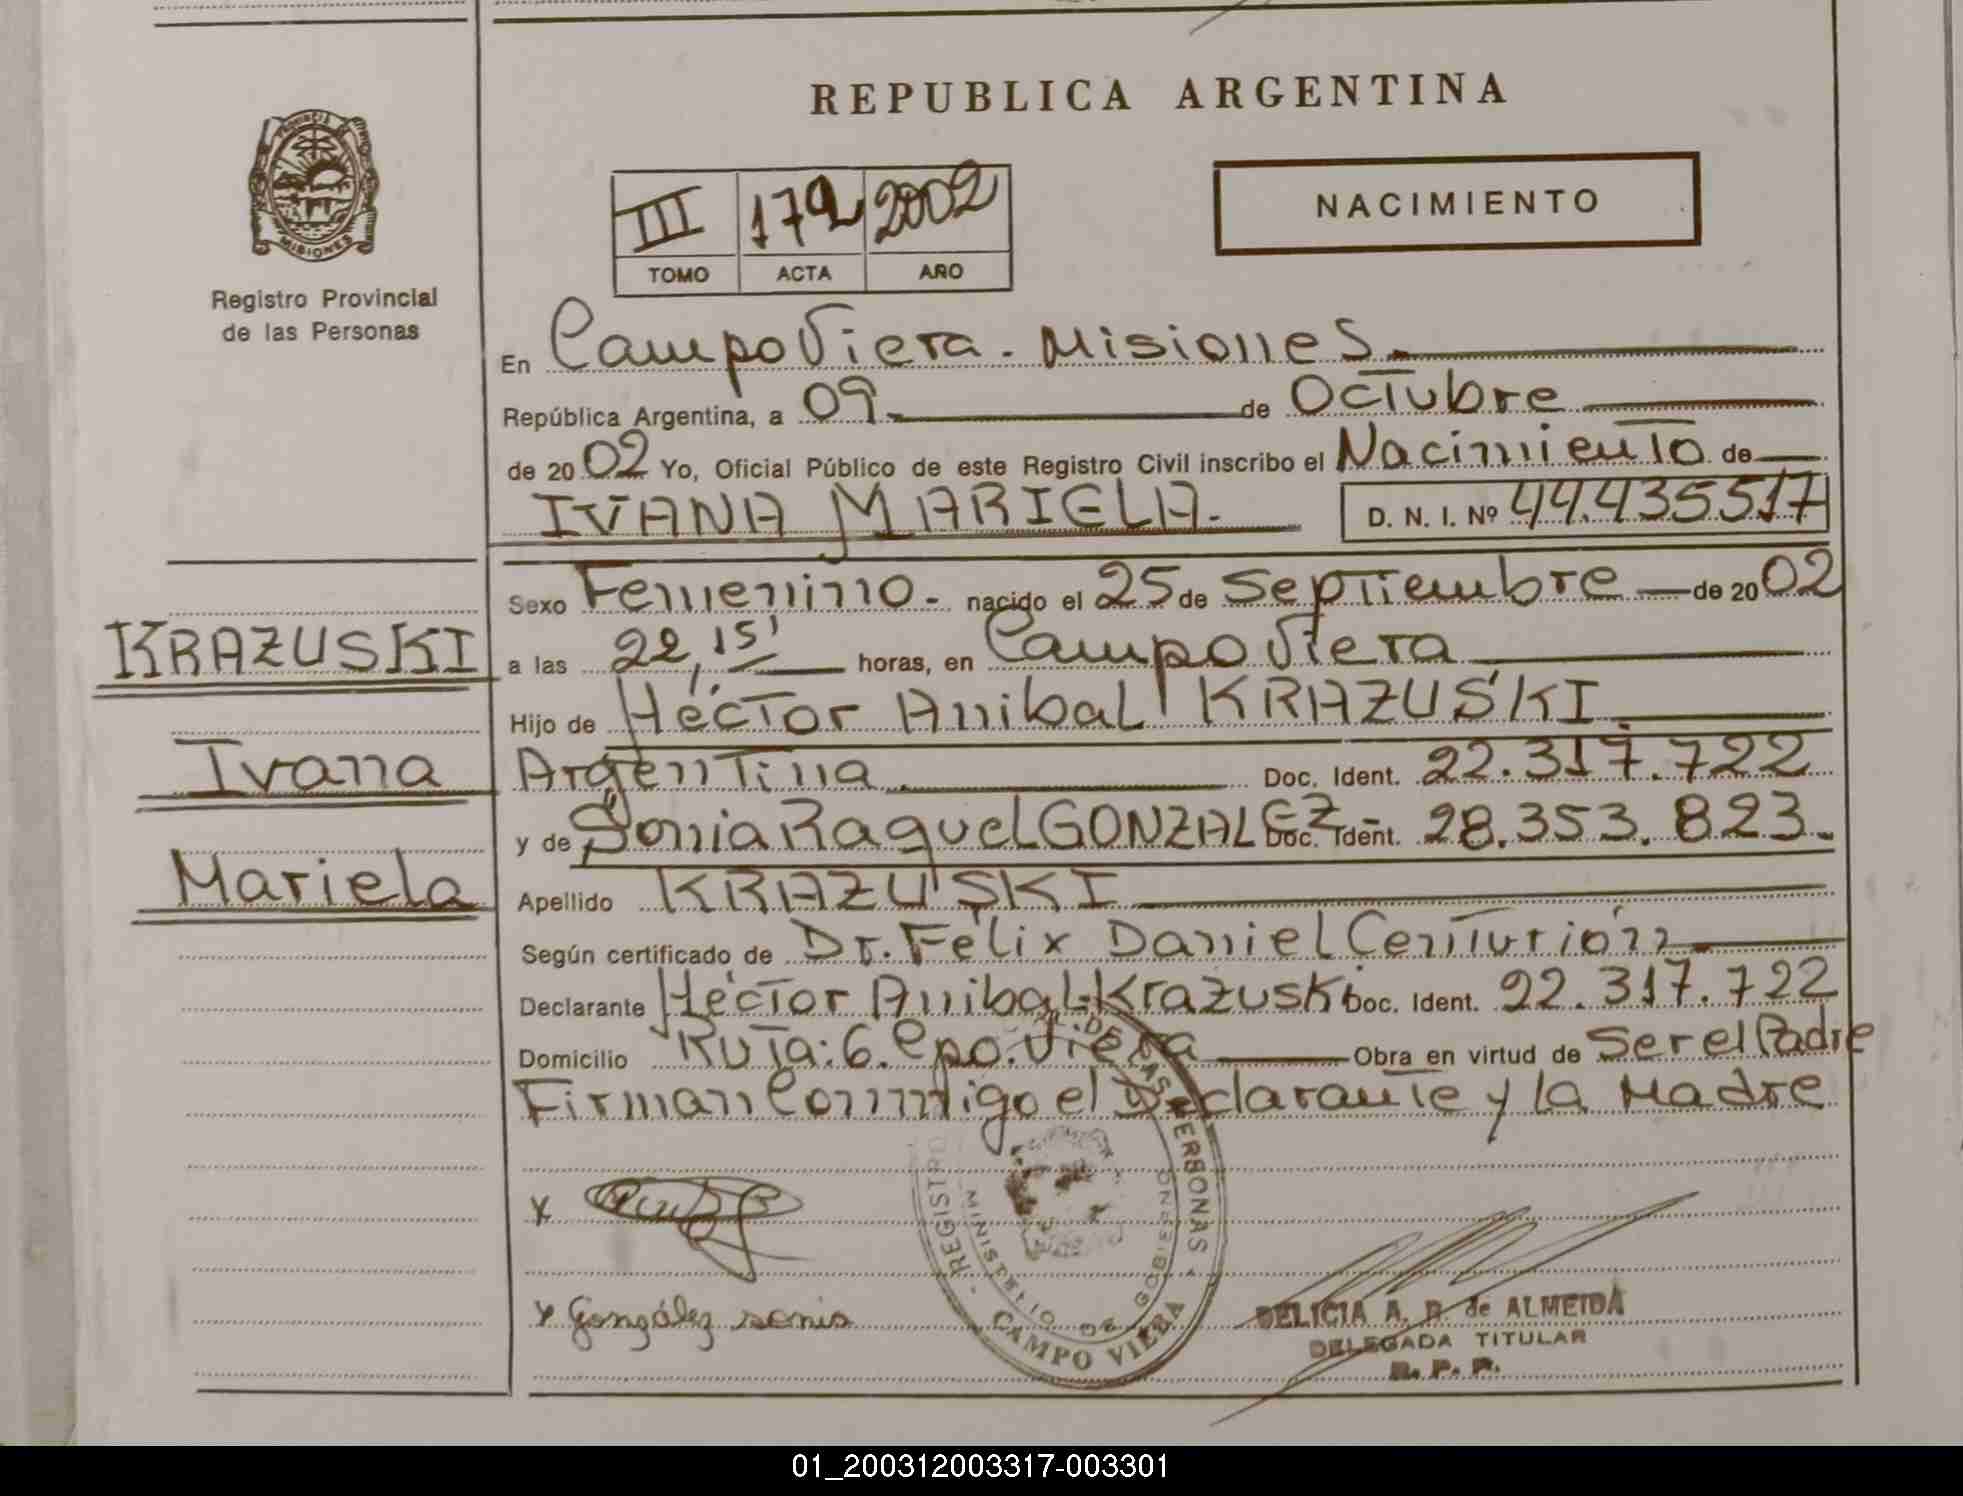 REPUBLICA ARGENTINA
PROVINCIA DE MISIONES
Registro Provincial
de las Personas
III 172 2002
TOMO ACTA AÑO
NACIMIENTO
En Campo Viera - Misiones.
República Argentina, a 09 de Octubre
de 2002 Yo, Oficial Público de este Registro Civil inscribo el Nacimiento de
IVANA MARIELA. D. N. I. Nº 44.435517
Sexo Femenino - nacido el 25 de Septiembre de 2002
KRAZUSKI
a las 22,15' horas, en Campo Viera
Hijo de Héctor Anibal KRAZUSKI
Ivana
Argentina Doc. Ident. 22.317.722
y de Sonia Raquel GONZALEZ Doc. Ident. 28.353.823.
Mariela
Apellido KRAZUSKI
Según certificado de Dr. Félix Daniel Centurión
Declarante Héctor Anibal Krazuski Doc. Ident. 22.317.722
Domicilio Ruta: 6. Cpo. Viera Obra en virtud de Ser el Padre
Firman Conmigo el Declarante y la Madre
X
X González sonia
REGISTRO DE LAS PERSONAS
MINISTERIO DE GOBIERNO
CAMPO VIERA
DELICIA A. D. de ALMEIDA
DELEGADA TITULAR
R. P. P.
01_200312003317-003301